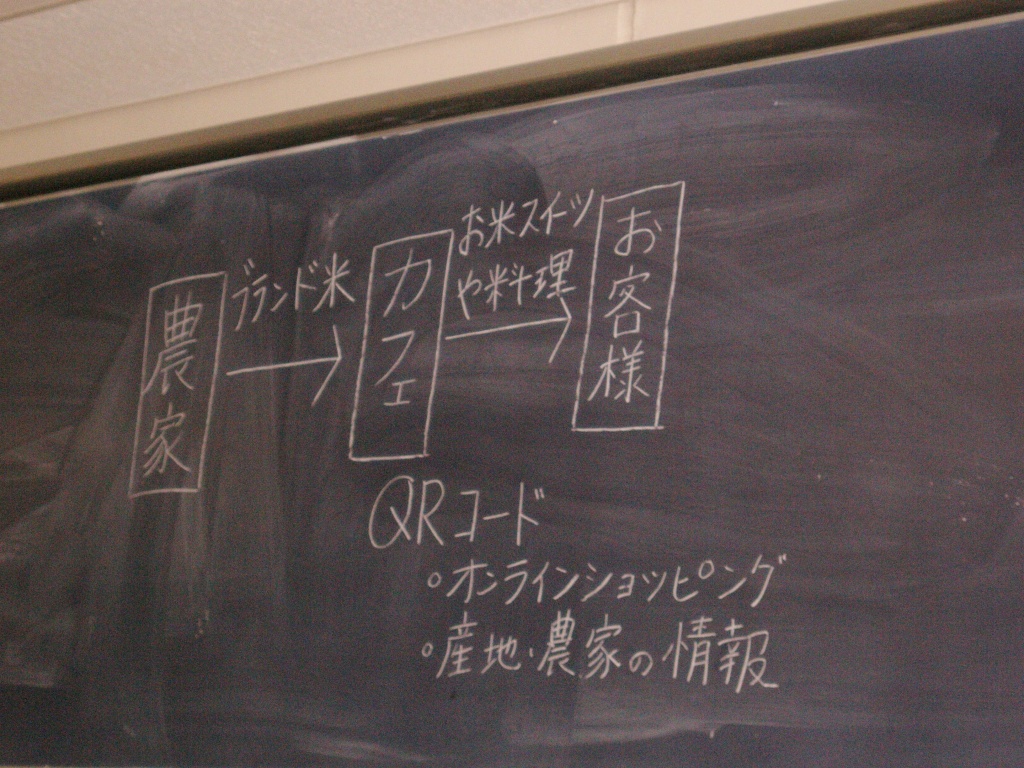 農家
ブランド米
カフェ
お米スイーツ
や料理
お客様
QRコード
○オンラインショッピング
○産地・農家の情報